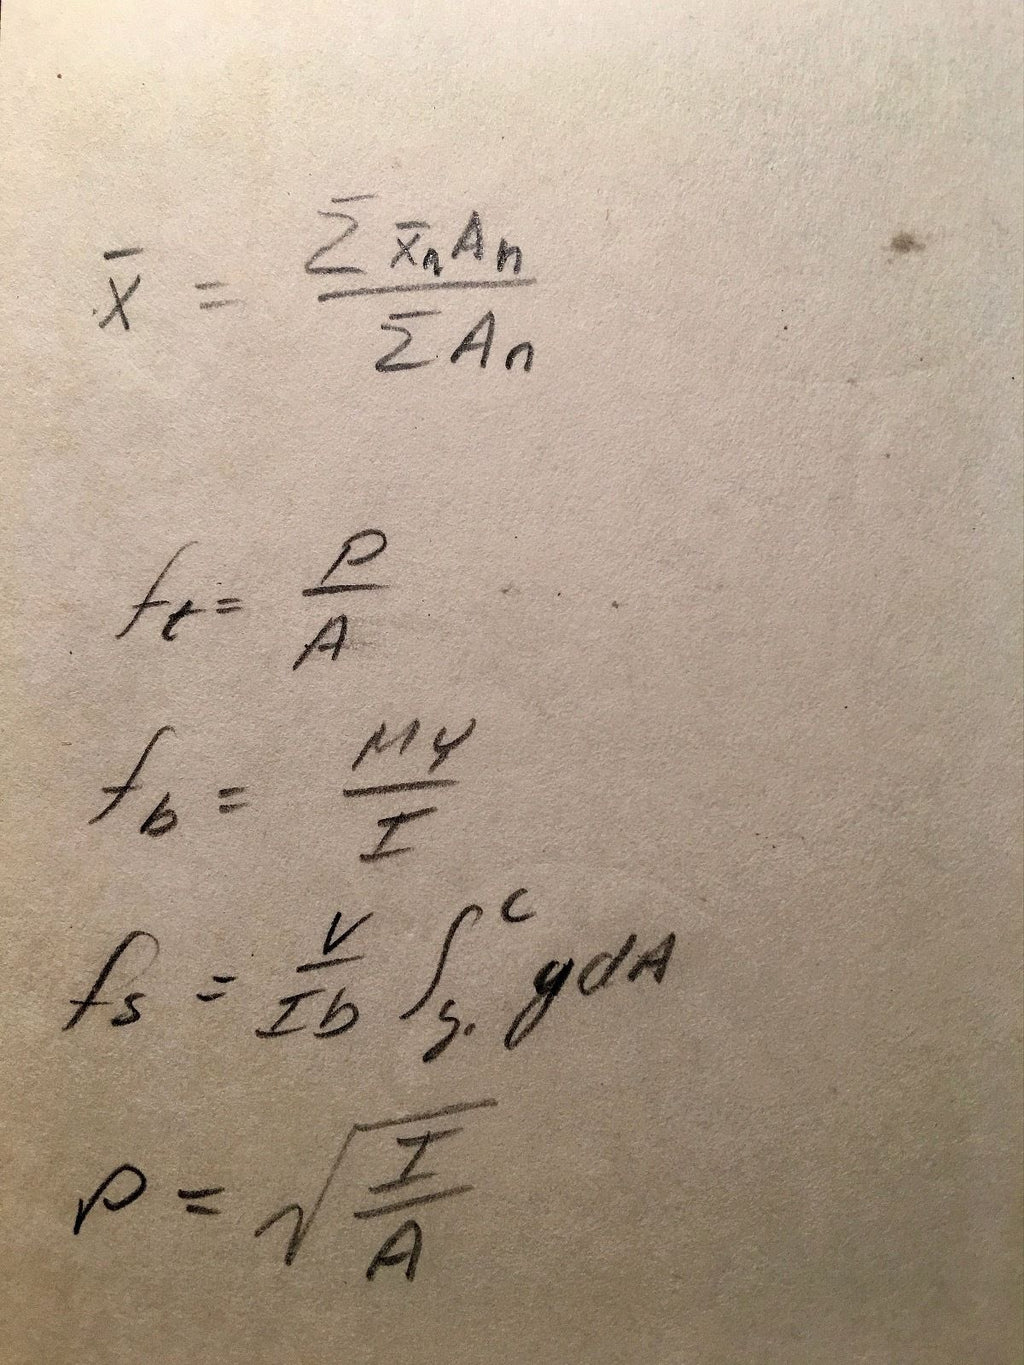 x̄ = Σ x̄ₙAₙ / Σ Aₙ
fₜ = P / A
f_b = My / I
f_s = V / Ib ∫_{y₁}^{c} y dA
ρ = √(I / A)